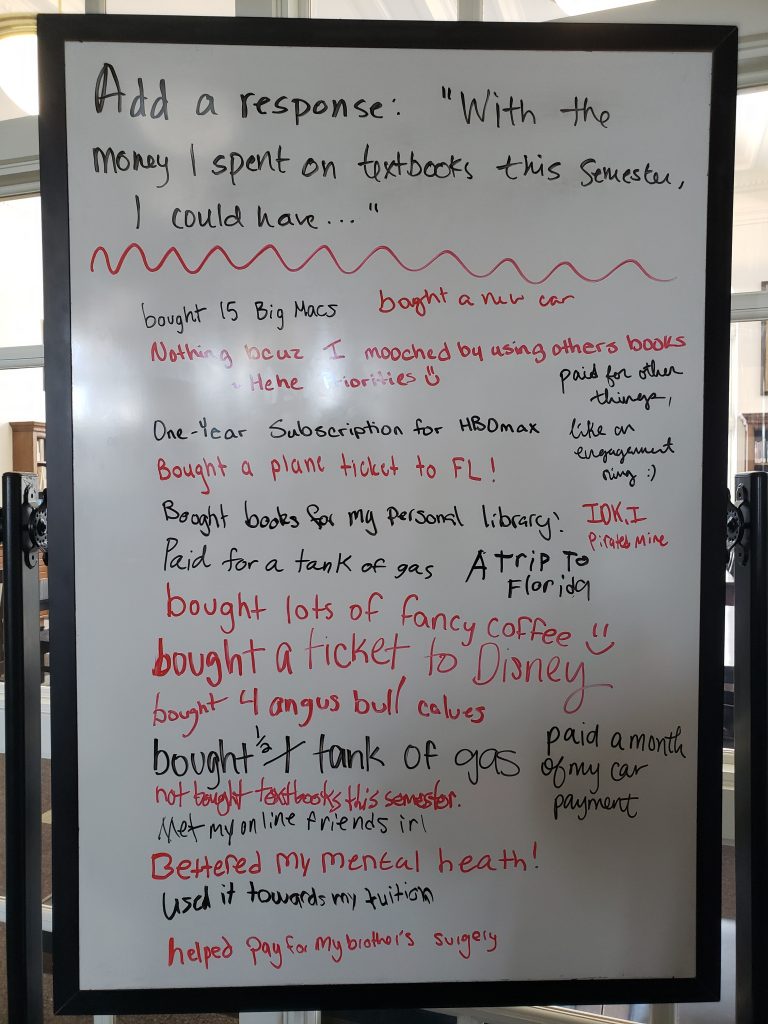 Add a response: "With the
money I spent on textbooks this semester,
I could have..."
bought 15 Big Macs
bought a new car
Nothing bcuz I mooched by using others books
Hehe Priorities
paid for other
things,
like an
engagement
ring :)
One-Year Subscription for HBOmax
Bought a plane ticket to FL!
Bought books for my personal library!
IDK, I
Pirated Mine
Paid for a tank of gas
A TRIP TO
Florida
bought lots of fancy coffee
bought a ticket to Disney
bought 4 angus bull calves
bought 1/2 tank of gas
paid a month
of my car
payment
not bought textbooks this semester.
Met my online friends irl
Bettered my mental heath!
Used it towards my tuition
helped pay for my brother's surgery